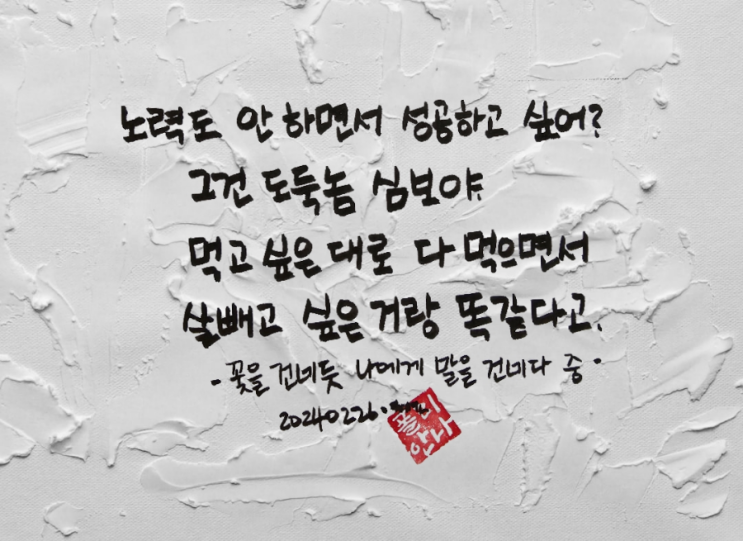 노력도 안 하면서 성공하고 싶어?
그건 도둑놈 심보야.
먹고 싶은 대로 다 먹으면서
살빼고 싶은 거랑 똑같다고.
- 꽃을 건네듯 나에게 말을 건네다 중 -
20240226.